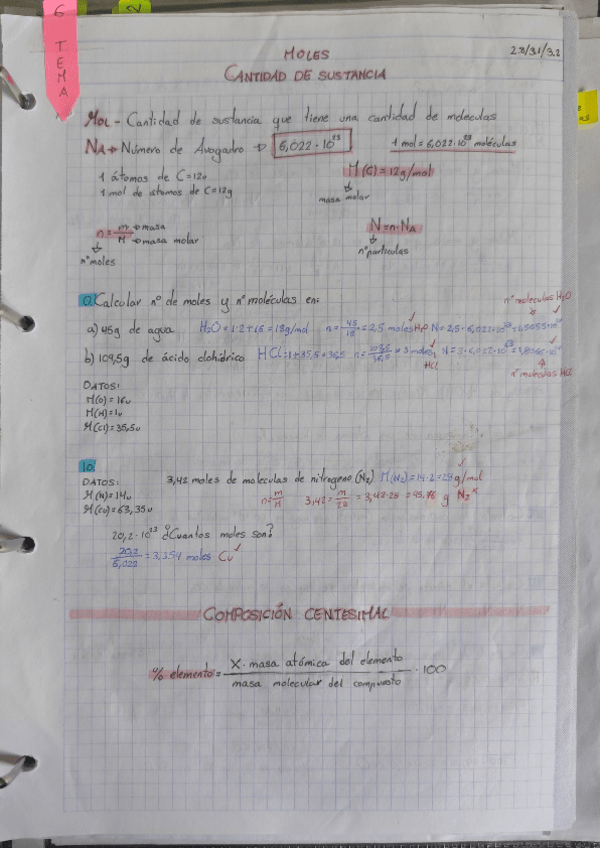 6
TEMA
2.3/3.1/3.2
MOLES
CANTIDAD DE SUSTANCIA
MOL - Cantidad de sustancia que tiene una cantidad de moleculas
NA → Número de Avogadro → 6,022·10²³ 1 mol = 6,022·10²³ moléculas
1 átomos de C=12u M(C)=12g/mol
1 mol de átomos de C=12g masa molar
n = m/M → masa → masa molar N=n·NA
nº moles nº partículas
0. Calcular nº de moles y nº moléculas en: nº moleculas H₂O
a) 45g de agua H₂O=1·2+16=18g/mol n=45/18=2,5 moles H₂O N=2,5·6,022·10²³
b) 109,5g de ácido clohidrico HCl=1+35,5=36,5 n=109,5/36,5=3 moles HCl N=3·6,022·10²³
nº moleculas HCl
DATOS:
M(O)=16u
M(H)=1u
M(Cl)=35,5u
10.
DATOS: 3,42 moles de moleculas de nitrogeno (N₂) M(N₂)=14·2=28g/mol
M(N)=14u n=m/M 3,42=m/28=3,42·28=95,76 g N₂
M(Cu)=63,35u
20,2·10²³ ¿Cuantos moles son?
20,2/6,022=3,354 moles Cu
COMPOSICIÓN CENTESIMAL
% elemento = X·masa atómica del elemento / masa molecular del compuesto ·100